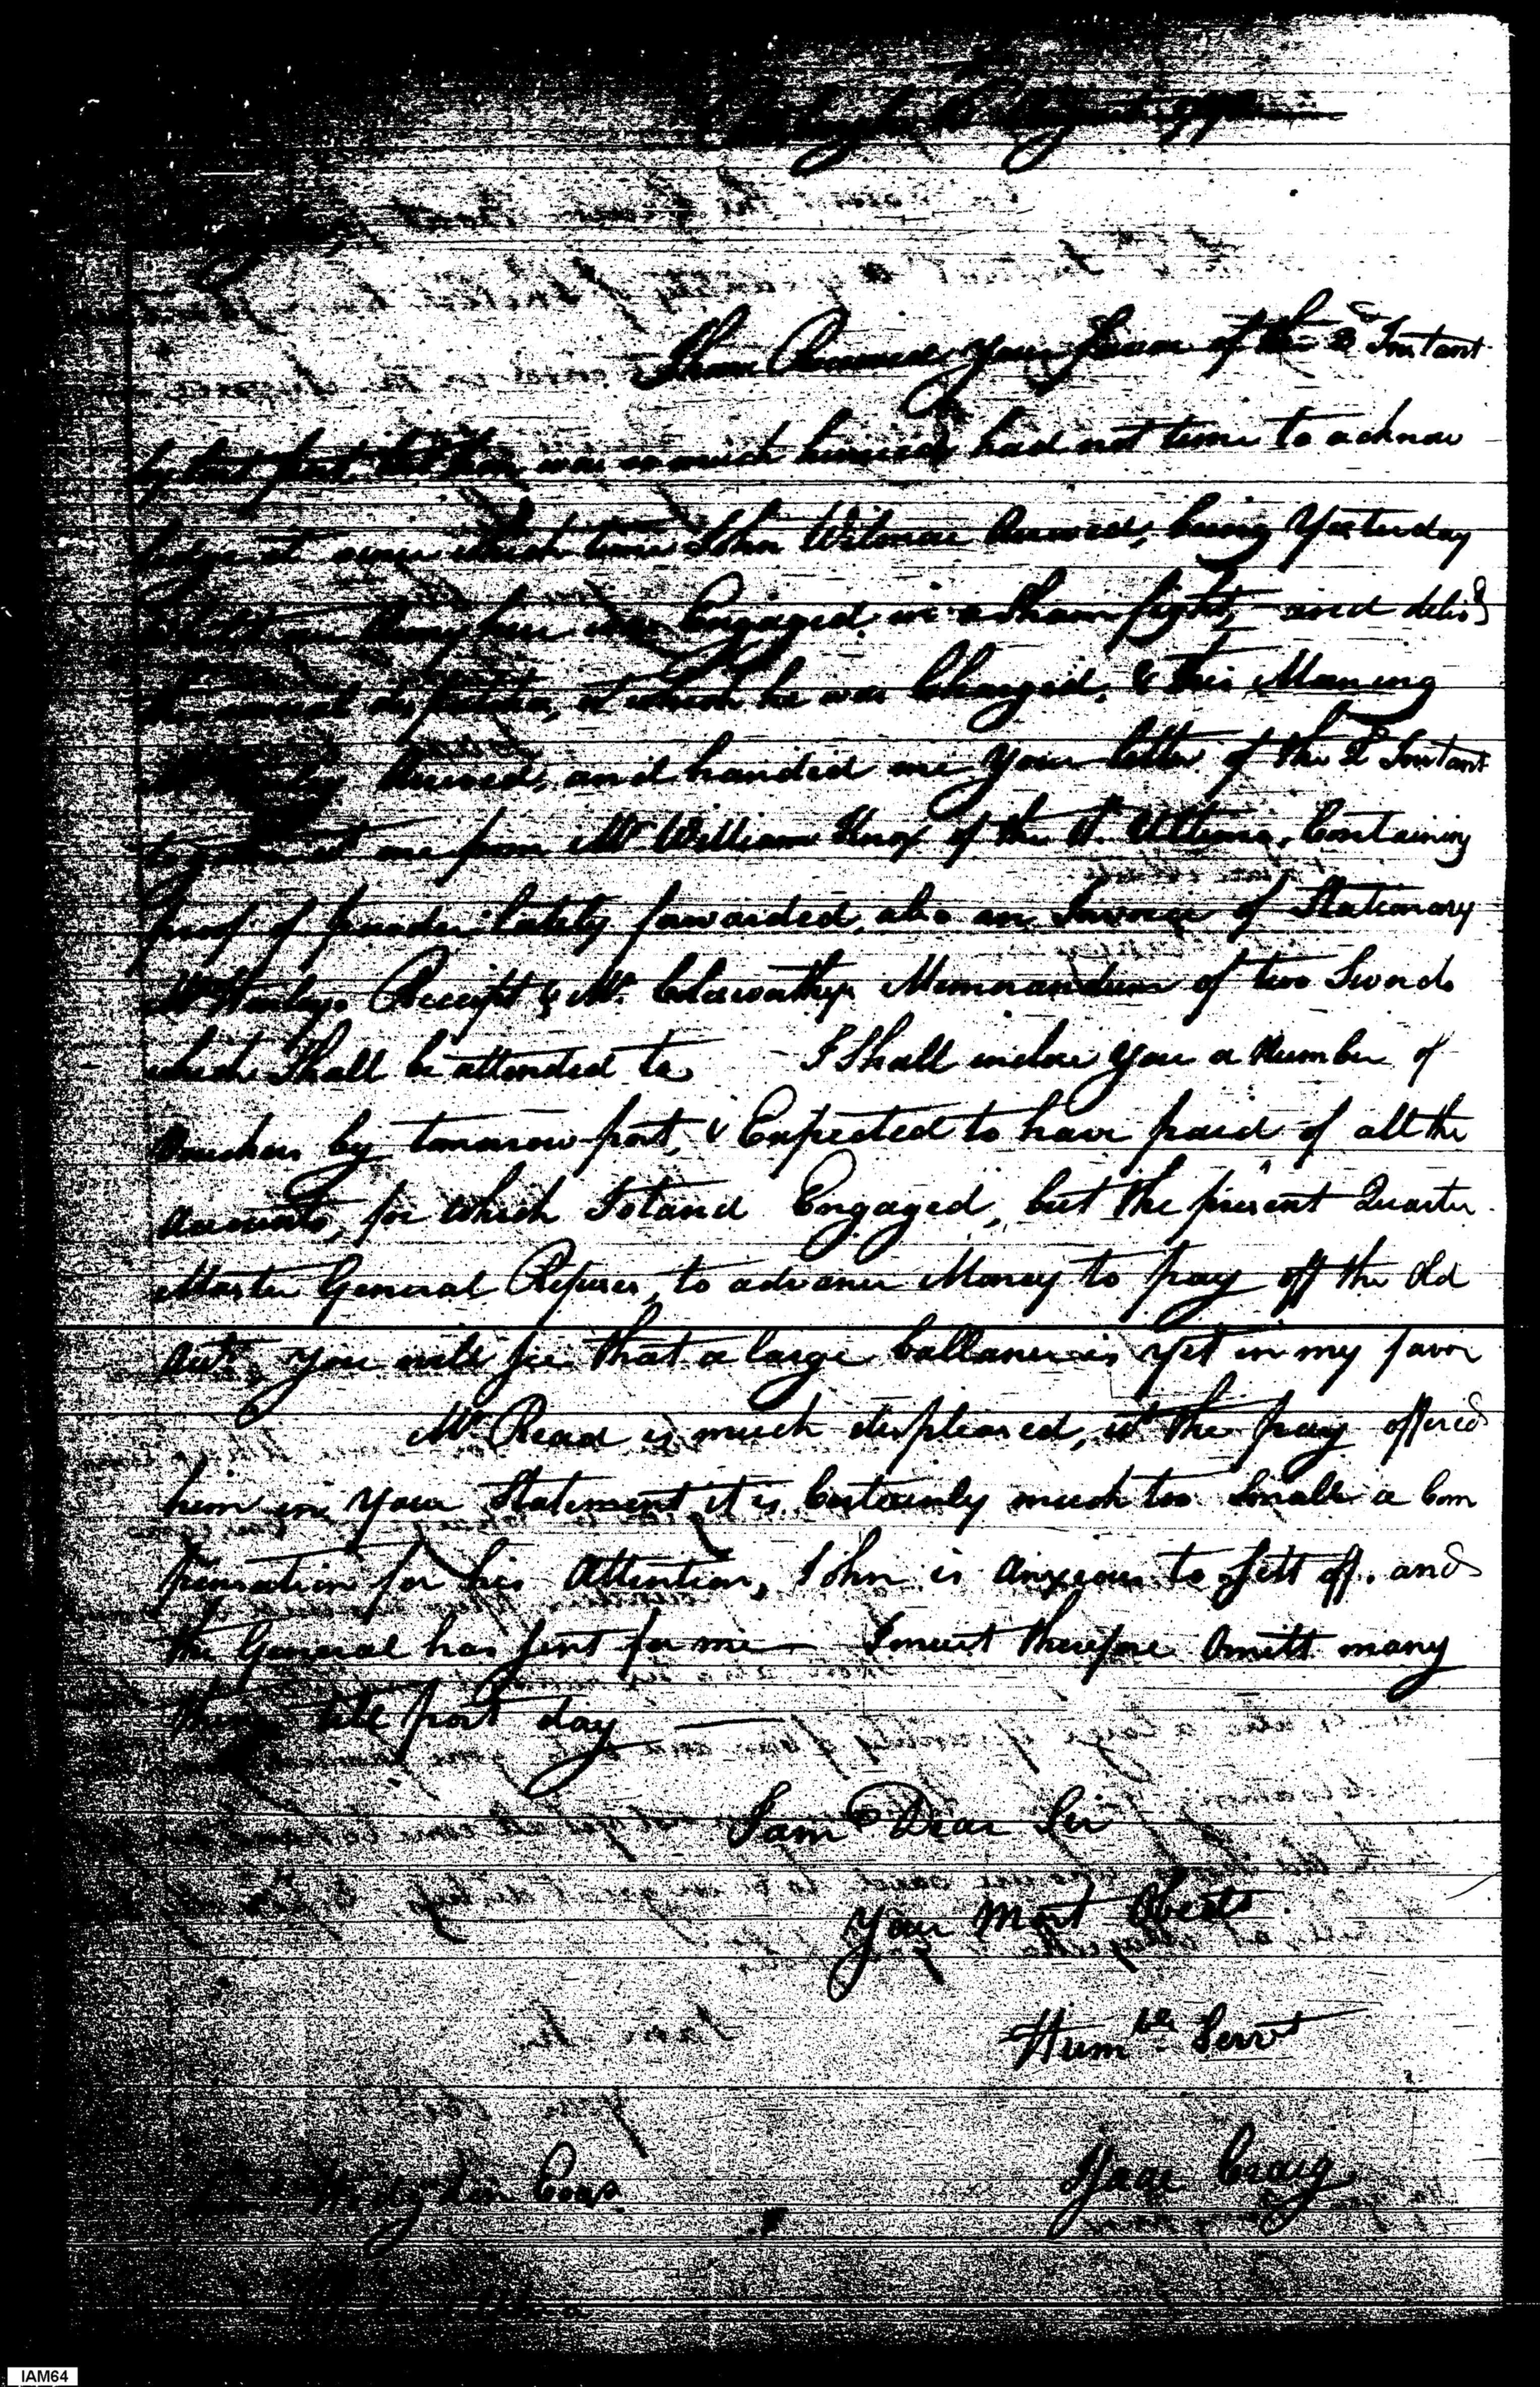 I have Received your favor of the 3d Instant
by last post, but was so much hurried had not time to acknow
ledge it since which time John Wilmore Arrived, being Yesterday
Engaged in a Sham fight, and deliv'd
the several dispatches, of which he was Charged, & this Morning
Arrived, and handed me your letter of the Instant
together with one from Mr William Knox of the Ultimo, Containing
proof of powder lately forwarded, also an Invoice of Stationary
Receipt & Mr. Memorandum of two Swords
which Shall be attended to I Shall inclose you a Number of
Vouchers by tomorrow post, & Expected to have paid of all the
Accounts, for which I stand Engaged, but the present Quarter
Master General Refuses, to advance Money to pay off the Old
Acts. you will see that a large ballance is yet in my favor
Mr Read is much displeased, at the pay offered
him in your Statement it is Certainly much too Small a Com
pensation for his Attention, John is Anxious to sett off. and
the General has sent for me — I must therefore Omitt many
things till post day —
I am Dear Sir
Your Most Obedt
Humble Servt
Isaac Craig
Hodgdon Esqr.
IAM64